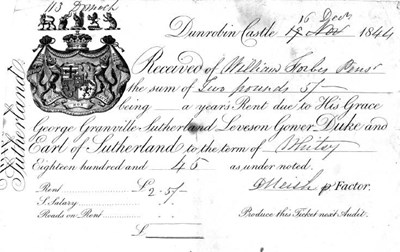 113 Dornoch
16 Decr
Dunrobin Castle 17 Nov 1844
Sutherland
Received of William Forbes
the sum of Two pounds 5/-
being a years Rent due to His Grace
George Granville Sutherland Leveson Gower Duke and
Earl of Sutherland to the term of Whitsy
Eighteen hundred and 45 as under noted.
Rent £2.5/-
S. Salary
Roads on Rent
£
p Factor.
Produce this Ticket next Audit.